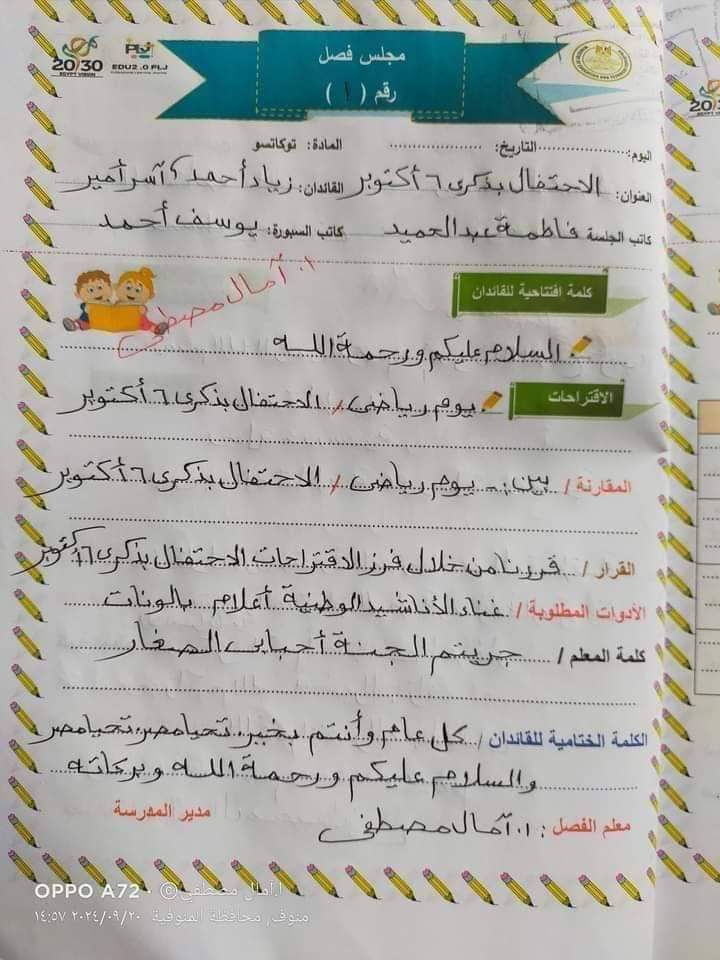 مجلس فصل
رقم (١)
20/30
EGYPT VISION
EDU2.0 PLJ
اليوم: .................. التاريخ: .................. المادة: توكاتسو
العنوان: الاحتفال بذكرى ٦ أكتوبر القائدان: زياد أحمد، آسر أمير
كاتب الجلسة فاطمة عبد الحميد كاتب السبورة: يوسف أحمد
أ. آمال مصطفى
كلمة افتتاحية للقائدان
السلام عليكم ورحمة الله
الاقتراحات
يوم رياضى / الاحتفال بذكرى ٦ أكتوبر
المقارنة / بين :- يوم رياضى / الاحتفال بذكرى ٦ أكتوبر
القرار / قررنا من خلال فرز الاقتراحات الاحتفال بذكرى ٦ أكتوبر
الأدوات المطلوبة / غناء الأناشيد الوطنية أعلام بالونات
كلمة المعلم / جريتم الجنة أحبابى الصغار
الكلمة الختامية للقائدان / كل عام وأنتم بخير. تحيا مصر. تحيا مصر
والسلام عليكم ورحمة الله وبركاته
معلم الفصل : أ. آمال مصطفى
مدير المدرسة
OPPO A72 · ©أ.آمال مصطفى
منوف، محافظة المنوفية ٢٠٢٤/٠٩/٢٠ ١٤:٥٧